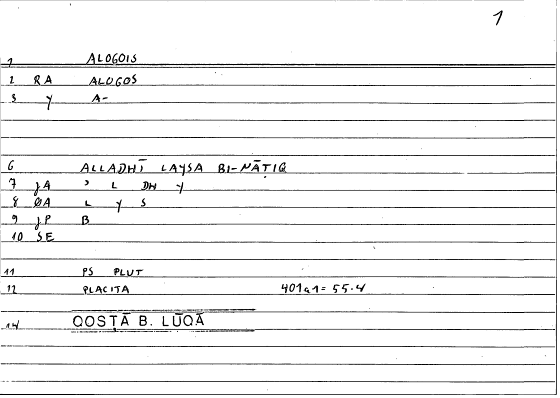 1
1 ALOGOIS
2 RA ALOGOS
3 y A-
6 ALLADHĪ LAYSA BI-NĀṬIQ
7 JA ʾ L DH Y
8 ØA L Y S
9 JP B
10 SE
11 PS PLUT
12 PLACITA 401a1=55.4
14 QOSṬĀ B. LŪQĀ